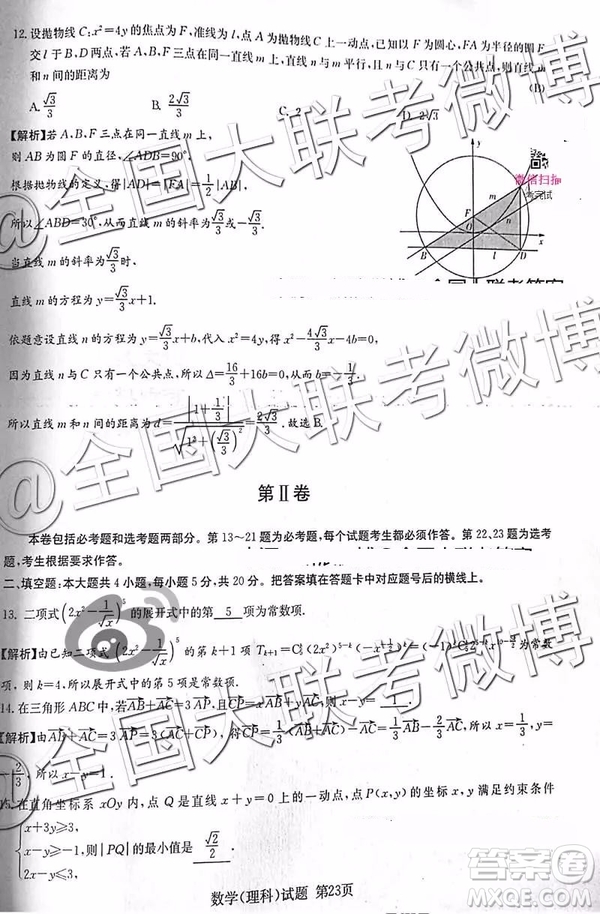 12. 设抛物线 C:x²=4y 的焦点为 F,准线为 l,点 A 为抛物线 C 上一动点,已知以 F 为圆心,FA 为半径的圆
交 l 于 B、D 两点,若 A、B、F 三点在同一直线 m 上,直线 n 与 m 平行,且 n 与 C 只有一个公共点,则直线 m
和 n 间的距离为
(B)
A. √3/3 B. 2√3/3 C. 2 D. 2√3
【解析】若 A、B、F 三点在同一直线 m 上,
则 AB 为圆 F 的直径,∠ADB=90°,
根据抛物线的定义,得|AD|=|FA|=1/2|AB|,
所以∠ABD=30°,从而直线 m 的斜率为√3/3或-√3/3.
当直线 m 的斜率为√3/3时,
直线 m 的方程为 y=√3/3x+1.
依题意设直线 n 的方程为 y=√3/3x+b,代入 x²=4y,得 x²-4√3/3x-4b=0,
因为直线 n 与 C 只有一个公共点,所以 Δ=16/3+16b=0,从而 b=-1/3,
所以直线 m 和 n 间的距离为 d=|1+1/3|/√(1²+(√3/3)²)=2√3/3.故选 B.
微信扫描
m n F O x B l D y
第Ⅱ卷
本卷包括必考题和选考题两部分。第 13~21 题为必考题,每个试题考生都必须作答。第 22、23 题为选考
题,考生根据要求作答。
二、填空题:本大题共 4 小题,每小题 5 分,共 20 分。把答案填在答题卡中对应题号后的横线上。
13. 二项式(2x²-1/√x)⁵的展开式中的第 5 项为常数项.
【解析】由已知二项式(2x²-1/√x)⁵的第 k+1 项 Tₖ₊₁=C₅ᵏ(2x²)⁵⁻ᵏ(-x^(-1/2))ᵏ=(-1)ᵏC₅ᵏ2⁵⁻ᵏx^(10-5k/2)为常数
项,则 k=4,所以展开式中的第 5 项是常数项.
14. 在三角形 ABC 中,若AB+AC=3AP,且CP=xAB+yAC,则 x-y=
【解析】由AB+AC=3AP=3(AC+CP),得CP=1/3AB-2/3AC,从而 x=1/3,y=
-2/3,所以 x-y=1.
15. 在直角坐标系 xOy 内,点 Q 是直线 x+y=0 上的一动点,点 P(x,y)的坐标(x,y)满足约束条件
{x+3y≥3,
x-y≤1,
2x-y≤3,
则|PQ|的最小值是 √2/2 .
数学(理科)试题 第23页
@全国大联考微博
@全国大联考微博
答案圈
MXQE.COM